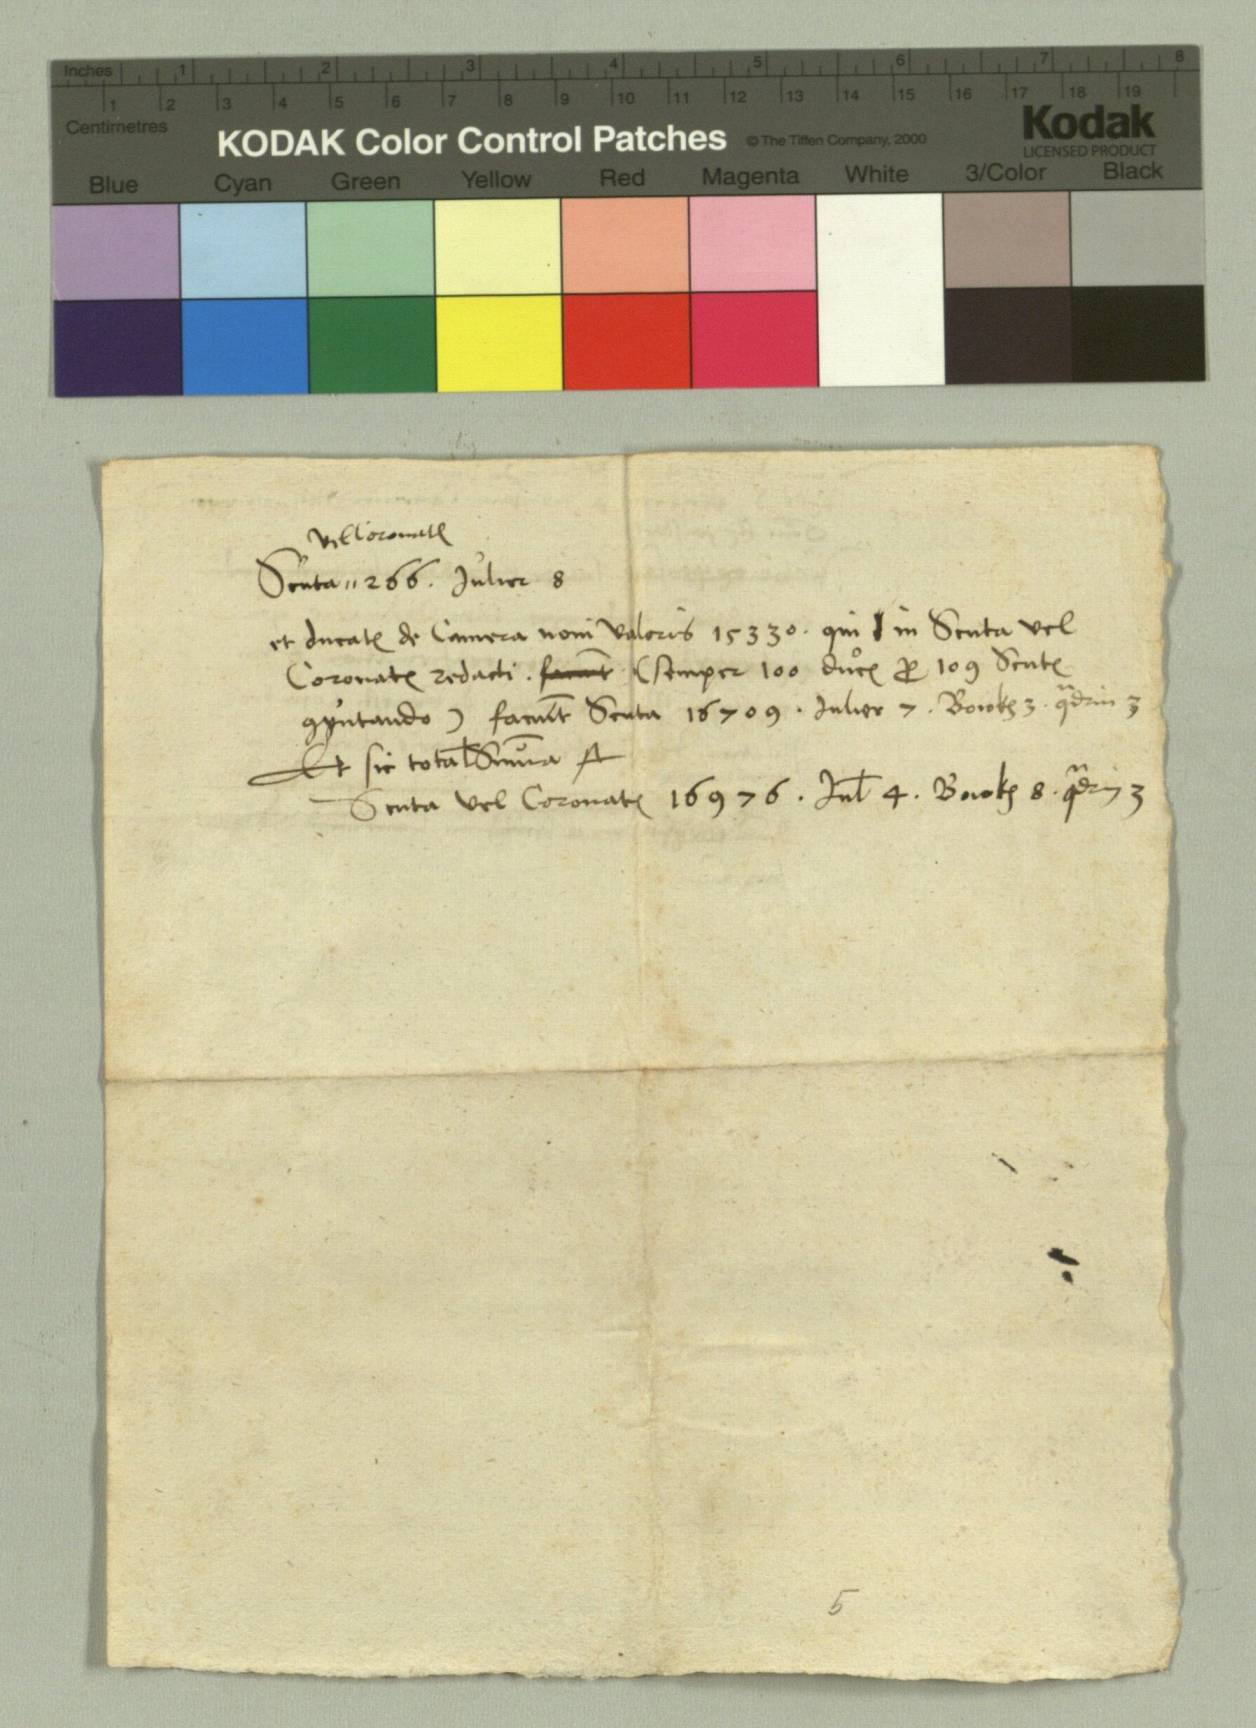 Inches 1 2 3 4 5 6 7 8
1 2 3 4 5 6 7 8 9 10 11 12 13 14 15 16 17 18 19
Centimetres
KODAK Color Control Patches © The Tiffen Company, 2000 Kodak
LICENSED PRODUCT
Blue Cyan Green Yellow Red Magenta White 3/Color Black
vel Coronat
Scuta 266. Julier 8
et ducat de Camera novi valoris 15330. qui in Scuta vel
Coronat redacti. facunt (semper 100 duc pro 109 Scut
9putando) faciunt Scuta 16709. Julier 7. 3. qdrin 3
Et sic total Summa
Scuta vel Coronat 16976. Jul 4. 8. qdrin 3
5